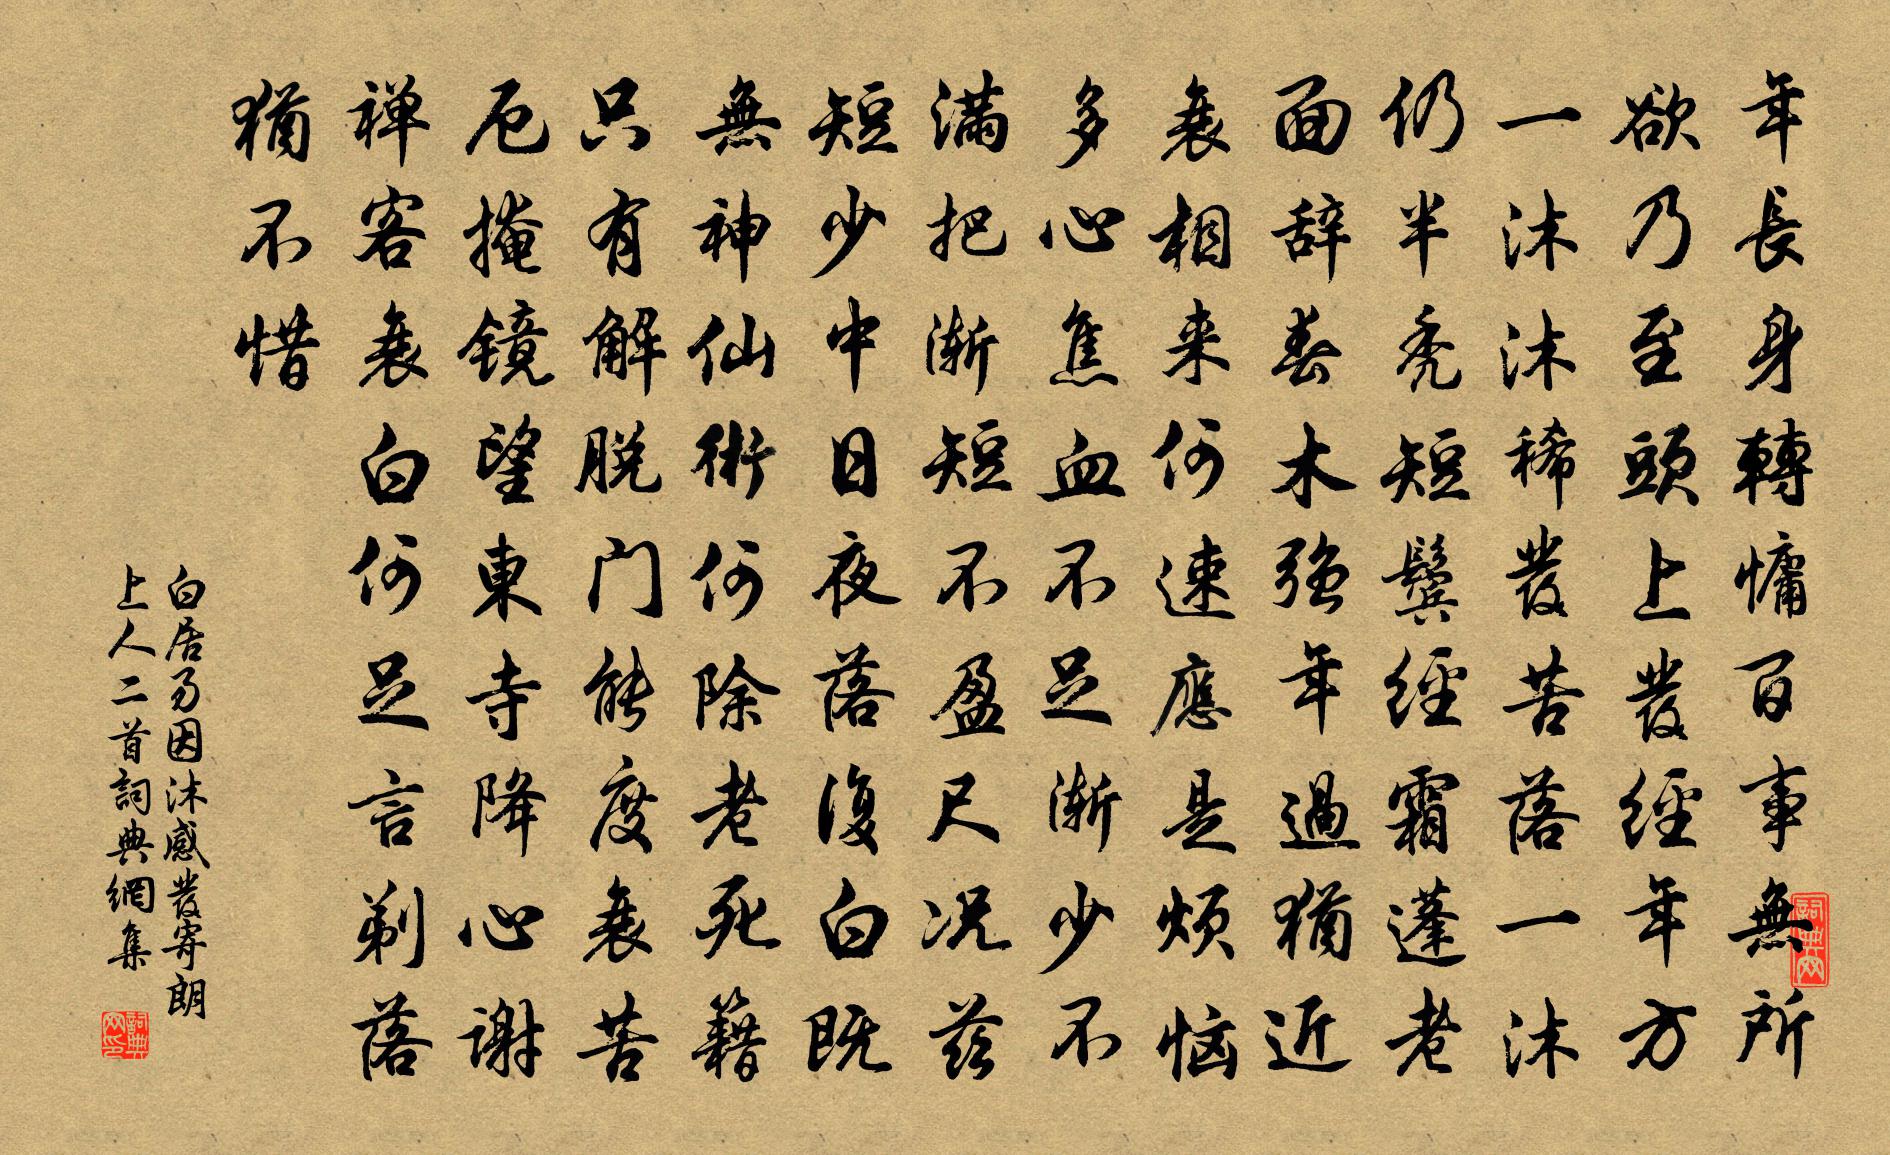 年長身轉慵百事無所
欲乃至頭上發經年方
一沐沐稀發苦落一沐
仍半秃短鬓經霜蓬老
面辞春木强年過猶近
衰相来何速應是煩恼
多心焦血不足漸少不
滿把漸短不盈尺况茲
短少中日夜落復白既
無神仙術何除老死籍
只有解脱门能度衰苦
厄掩镜望東寺降心謝
禅客衰白何足言剃落
猶不惜
白居易因沐感發寄朗
上人二首詞典網集
詞典网
詞典网印